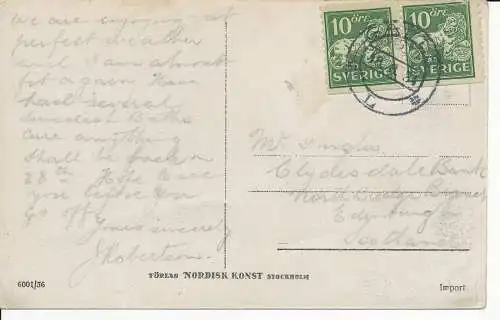 we are enjoying
perfect weather
and I am almost
fit again. Have
had several
Swedish Baths
cure anything
Shall be back on
28th. Hope to see
you before you
go off
Yours sincerely
J Robertson
10 ÖRE 10 ÖRE
SVERIGE SVERIGE
Mr
Clydesdale Bank
North Bridge Branch
Edinburgh
Scotland
FÖRLAG NORDISK KONST STOCKHOLM
6001/36
Import